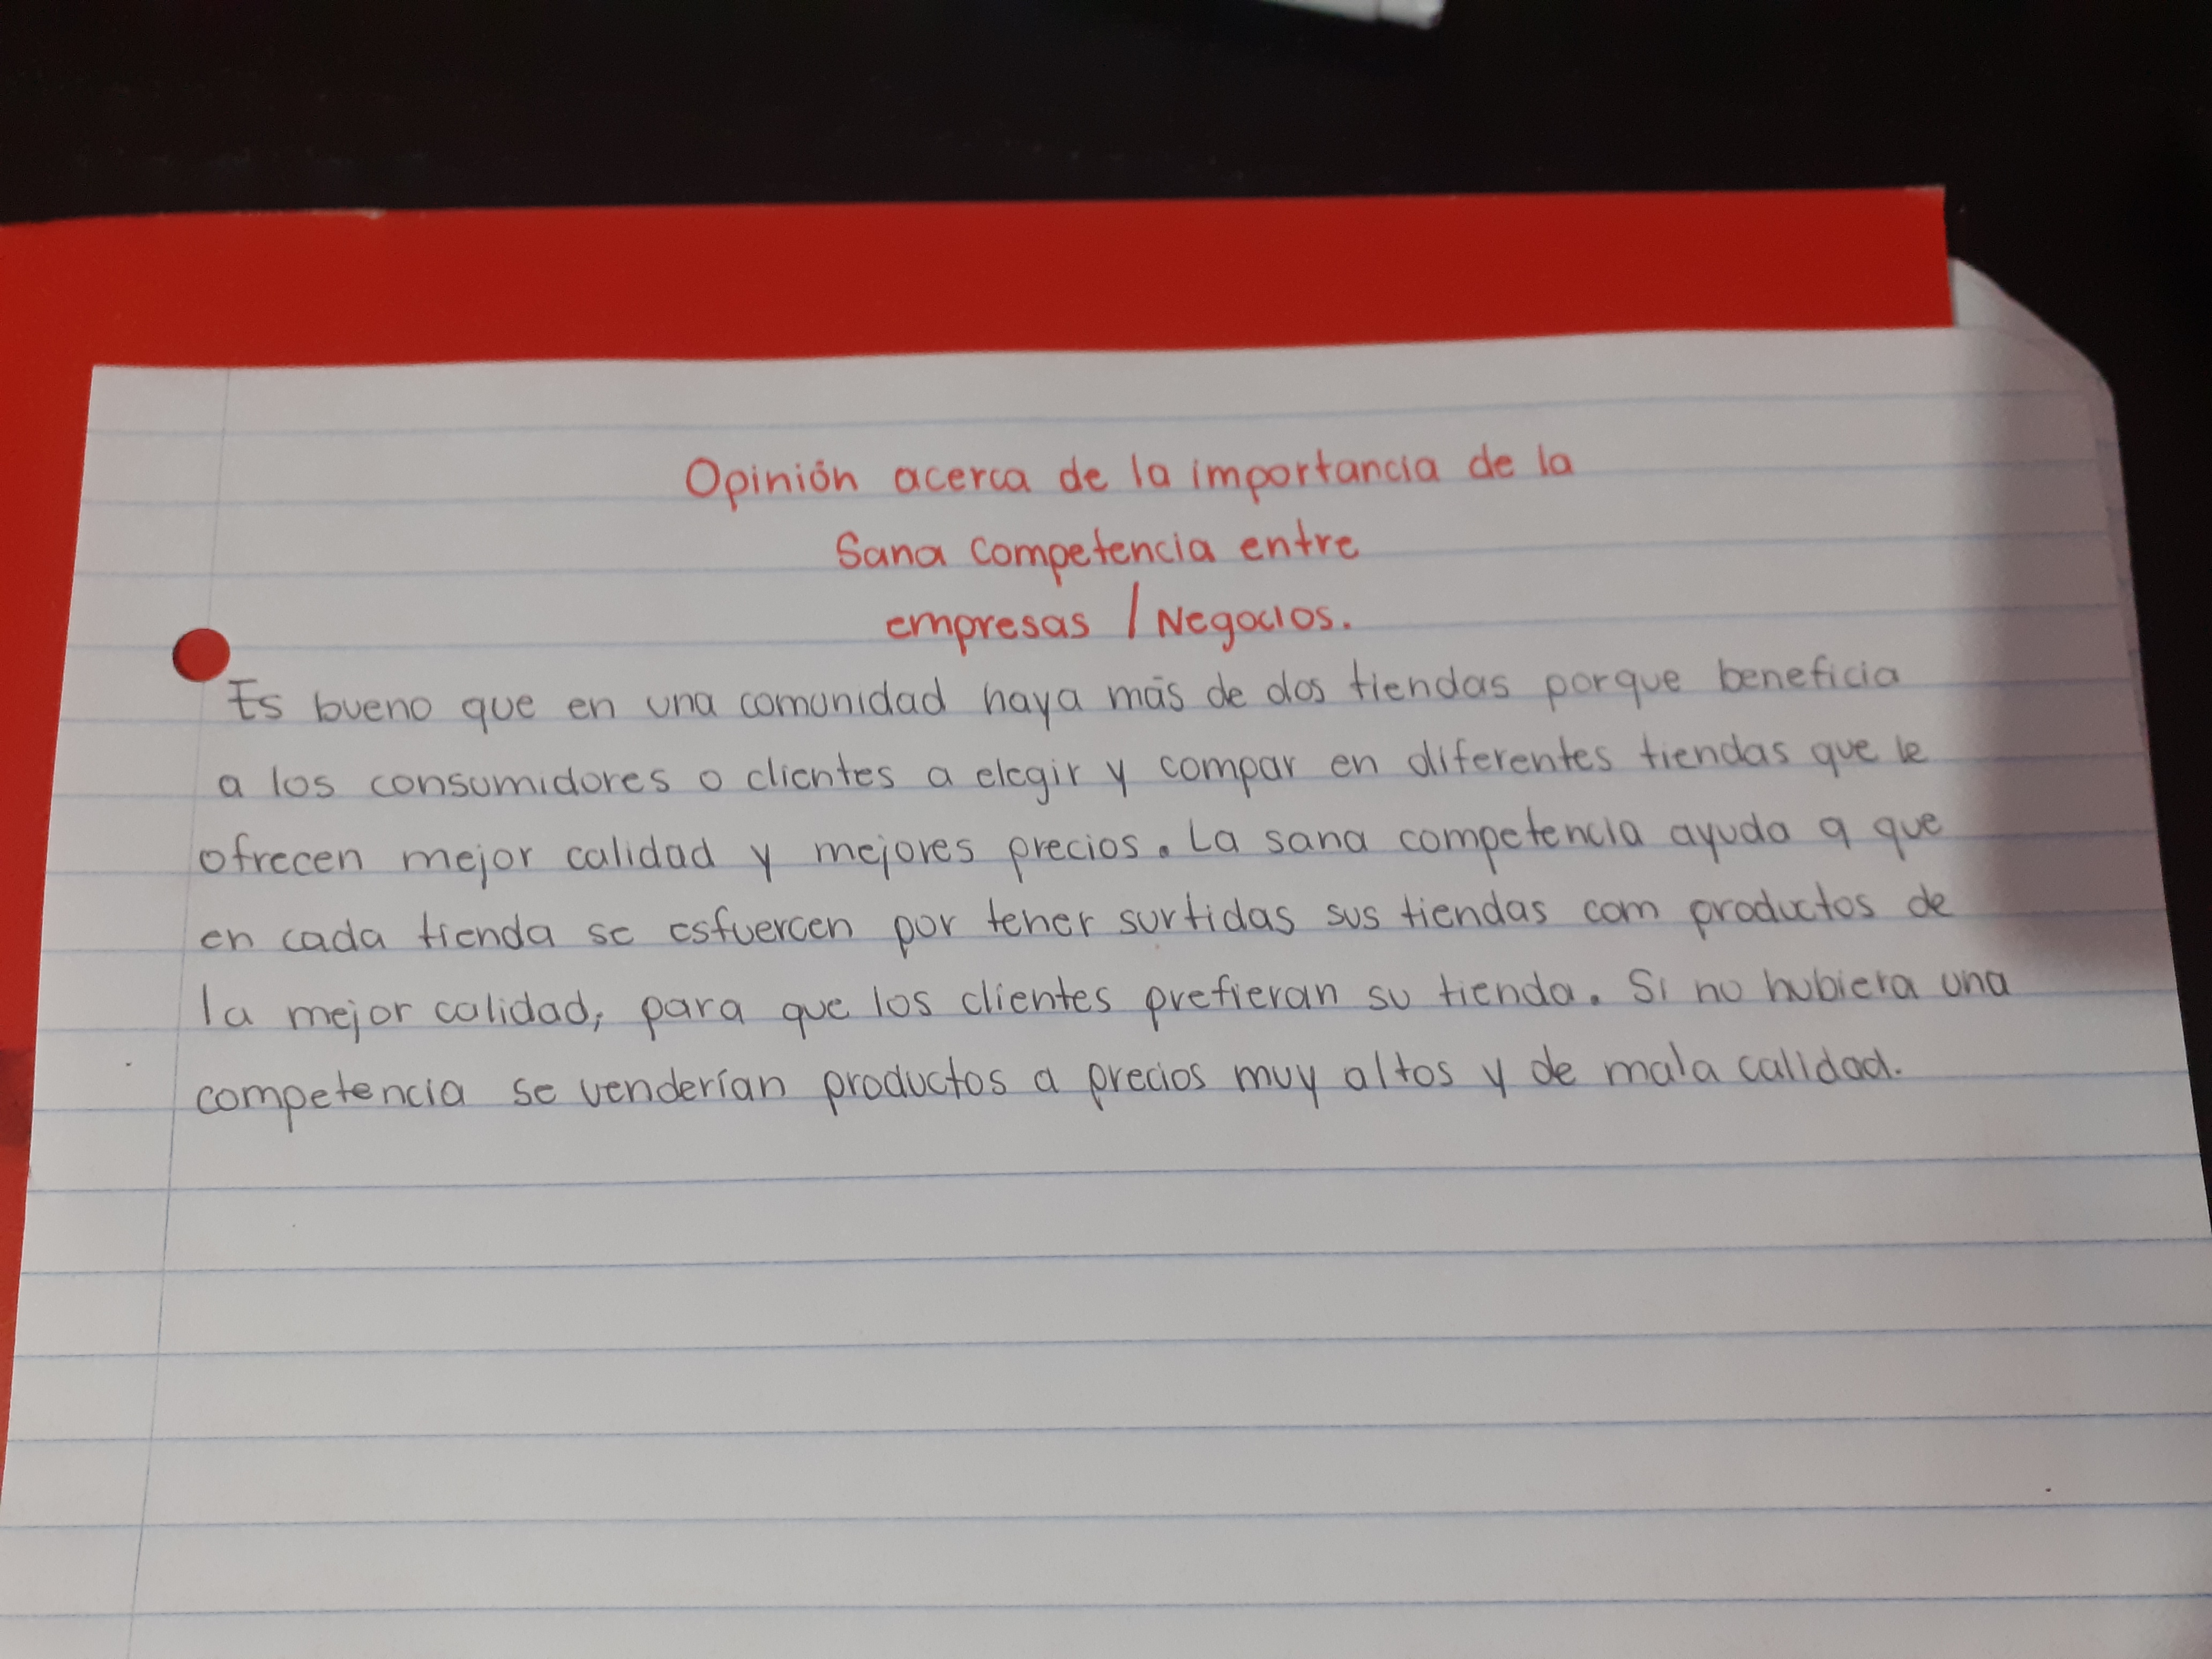 Opinión acerca de la importancia de la
Sana competencia entre
empresas / Negocios.
Es bueno que en una comunidad haya más de dos tiendas porque beneficia
a los consumidores o clientes a elegir y compar en diferentes tiendas que le
ofrecen mejor calidad y mejores precios. La sana competencia ayuda a que
en cada tienda se esfuercen por tener surtidas sus tiendas com productos de
la mejor calidad, para que los clientes prefieran su tienda. Si no hubiera una
competencia se venderían productos a precios muy altos y de mala calidad.